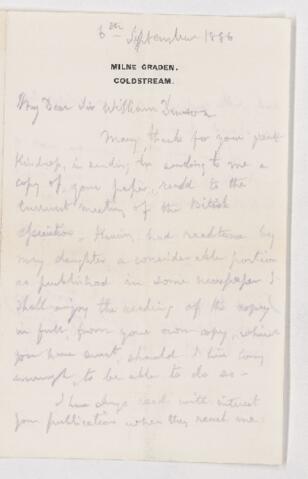 6th September 1886
MILNE GRADEN.
COLDSTREAM.
My Dear Sir William Dawson
Many thanks for your great
kindness, in sending to me a
copy of your paper, read to the
current meeting of the British
Association. Having had read to me by
my daughter a considerable portion
as published in some newspaper I
shall enjoy the reading of the
in full from your own copy, which
you have sent, should I live long
enough, to be able to do so -
I have always read with interest
your publications when they reach me.